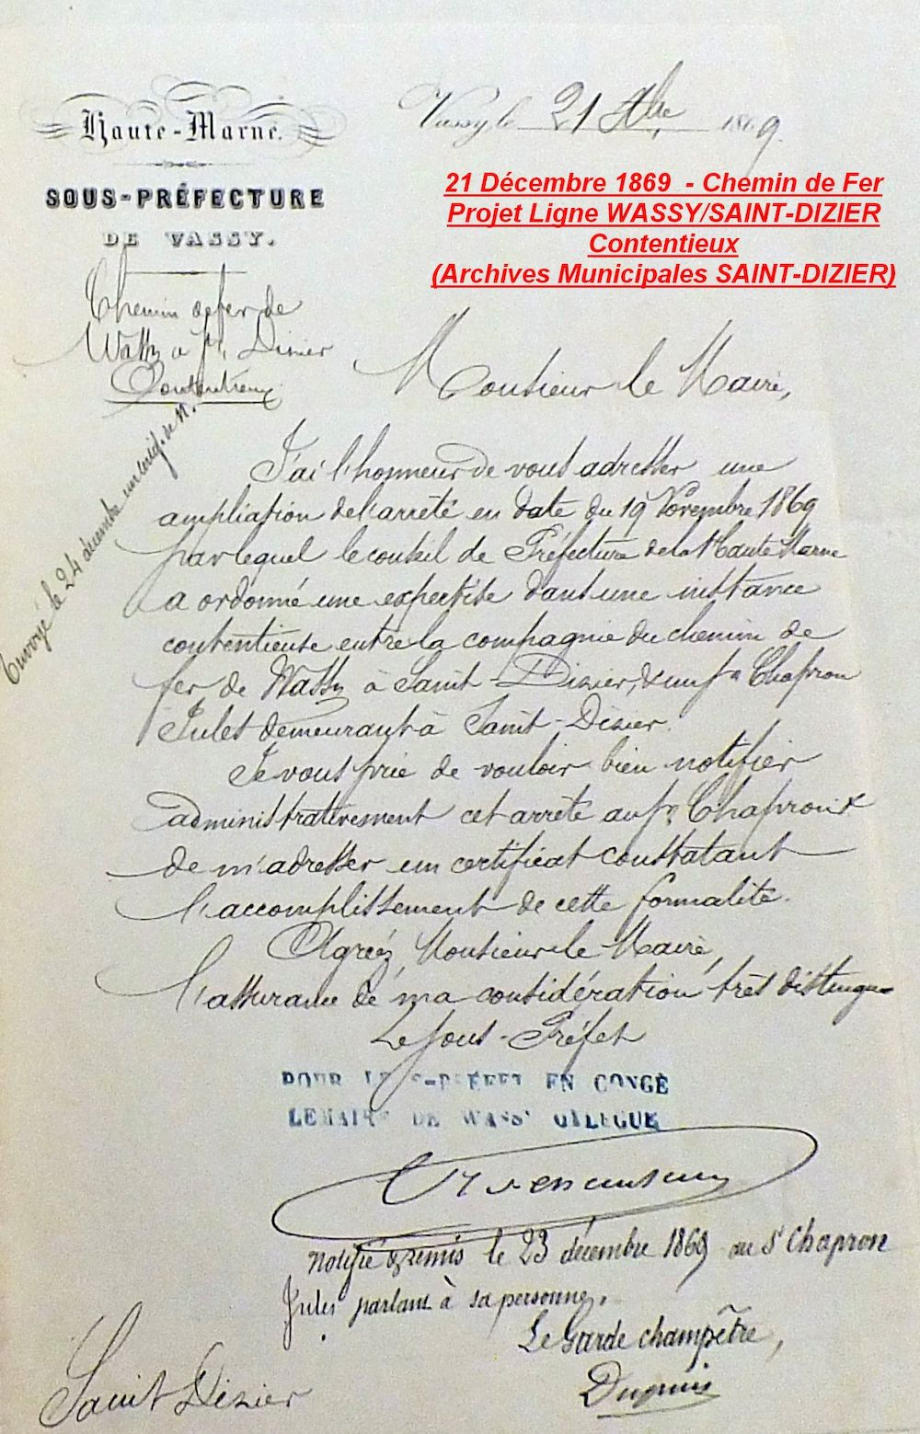 Haute-Marne.
SOUS-PRÉFECTURE
DE VASSY.
Vassy, le 21 Xbre 1869.
21 Décembre 1869 - Chemin de Fer
Projet Ligne WASSY/SAINT-DIZIER
Contentieux
(Archives Municipales SAINT-DIZIER)
Chemin de fer de
Wassy à St Dizier
Contentieux
Envoyé le 24 décembre un certif. de N.
Monsieur le Maire,
J'ai l'honneur de vous adresser une
ampliation de l'arrêté en date du 19 Novembre 1869
par lequel le conseil de Préfecture de la Haute Marne
a ordonné une expertise dans une instance
contentieuse entre la compagnie du chemin de
fer de Wassy à Saint-Dizier, & un sr Chapron
Jules demeurant à Saint-Dizier.
Je vous prie de vouloir bien notifier
administrativement cet arrêté au sr Chapron &
de m'adresser un certificat constatant
l'accomplissement de cette formalité.
Agréez, Monsieur le Maire,
l'assurance de ma considération très distinguée
Le Sous-Préfet
POUR LE S-PRÉFET EN CONGÉ
LE MAIRE DE WASSY DÉLÉGUÉ
Notifié & remis le 23 décembre 1869 au Sr Chapron
Jules parlant à sa personne.
Le Garde champêtre,
Dupuis
Saint Dizier